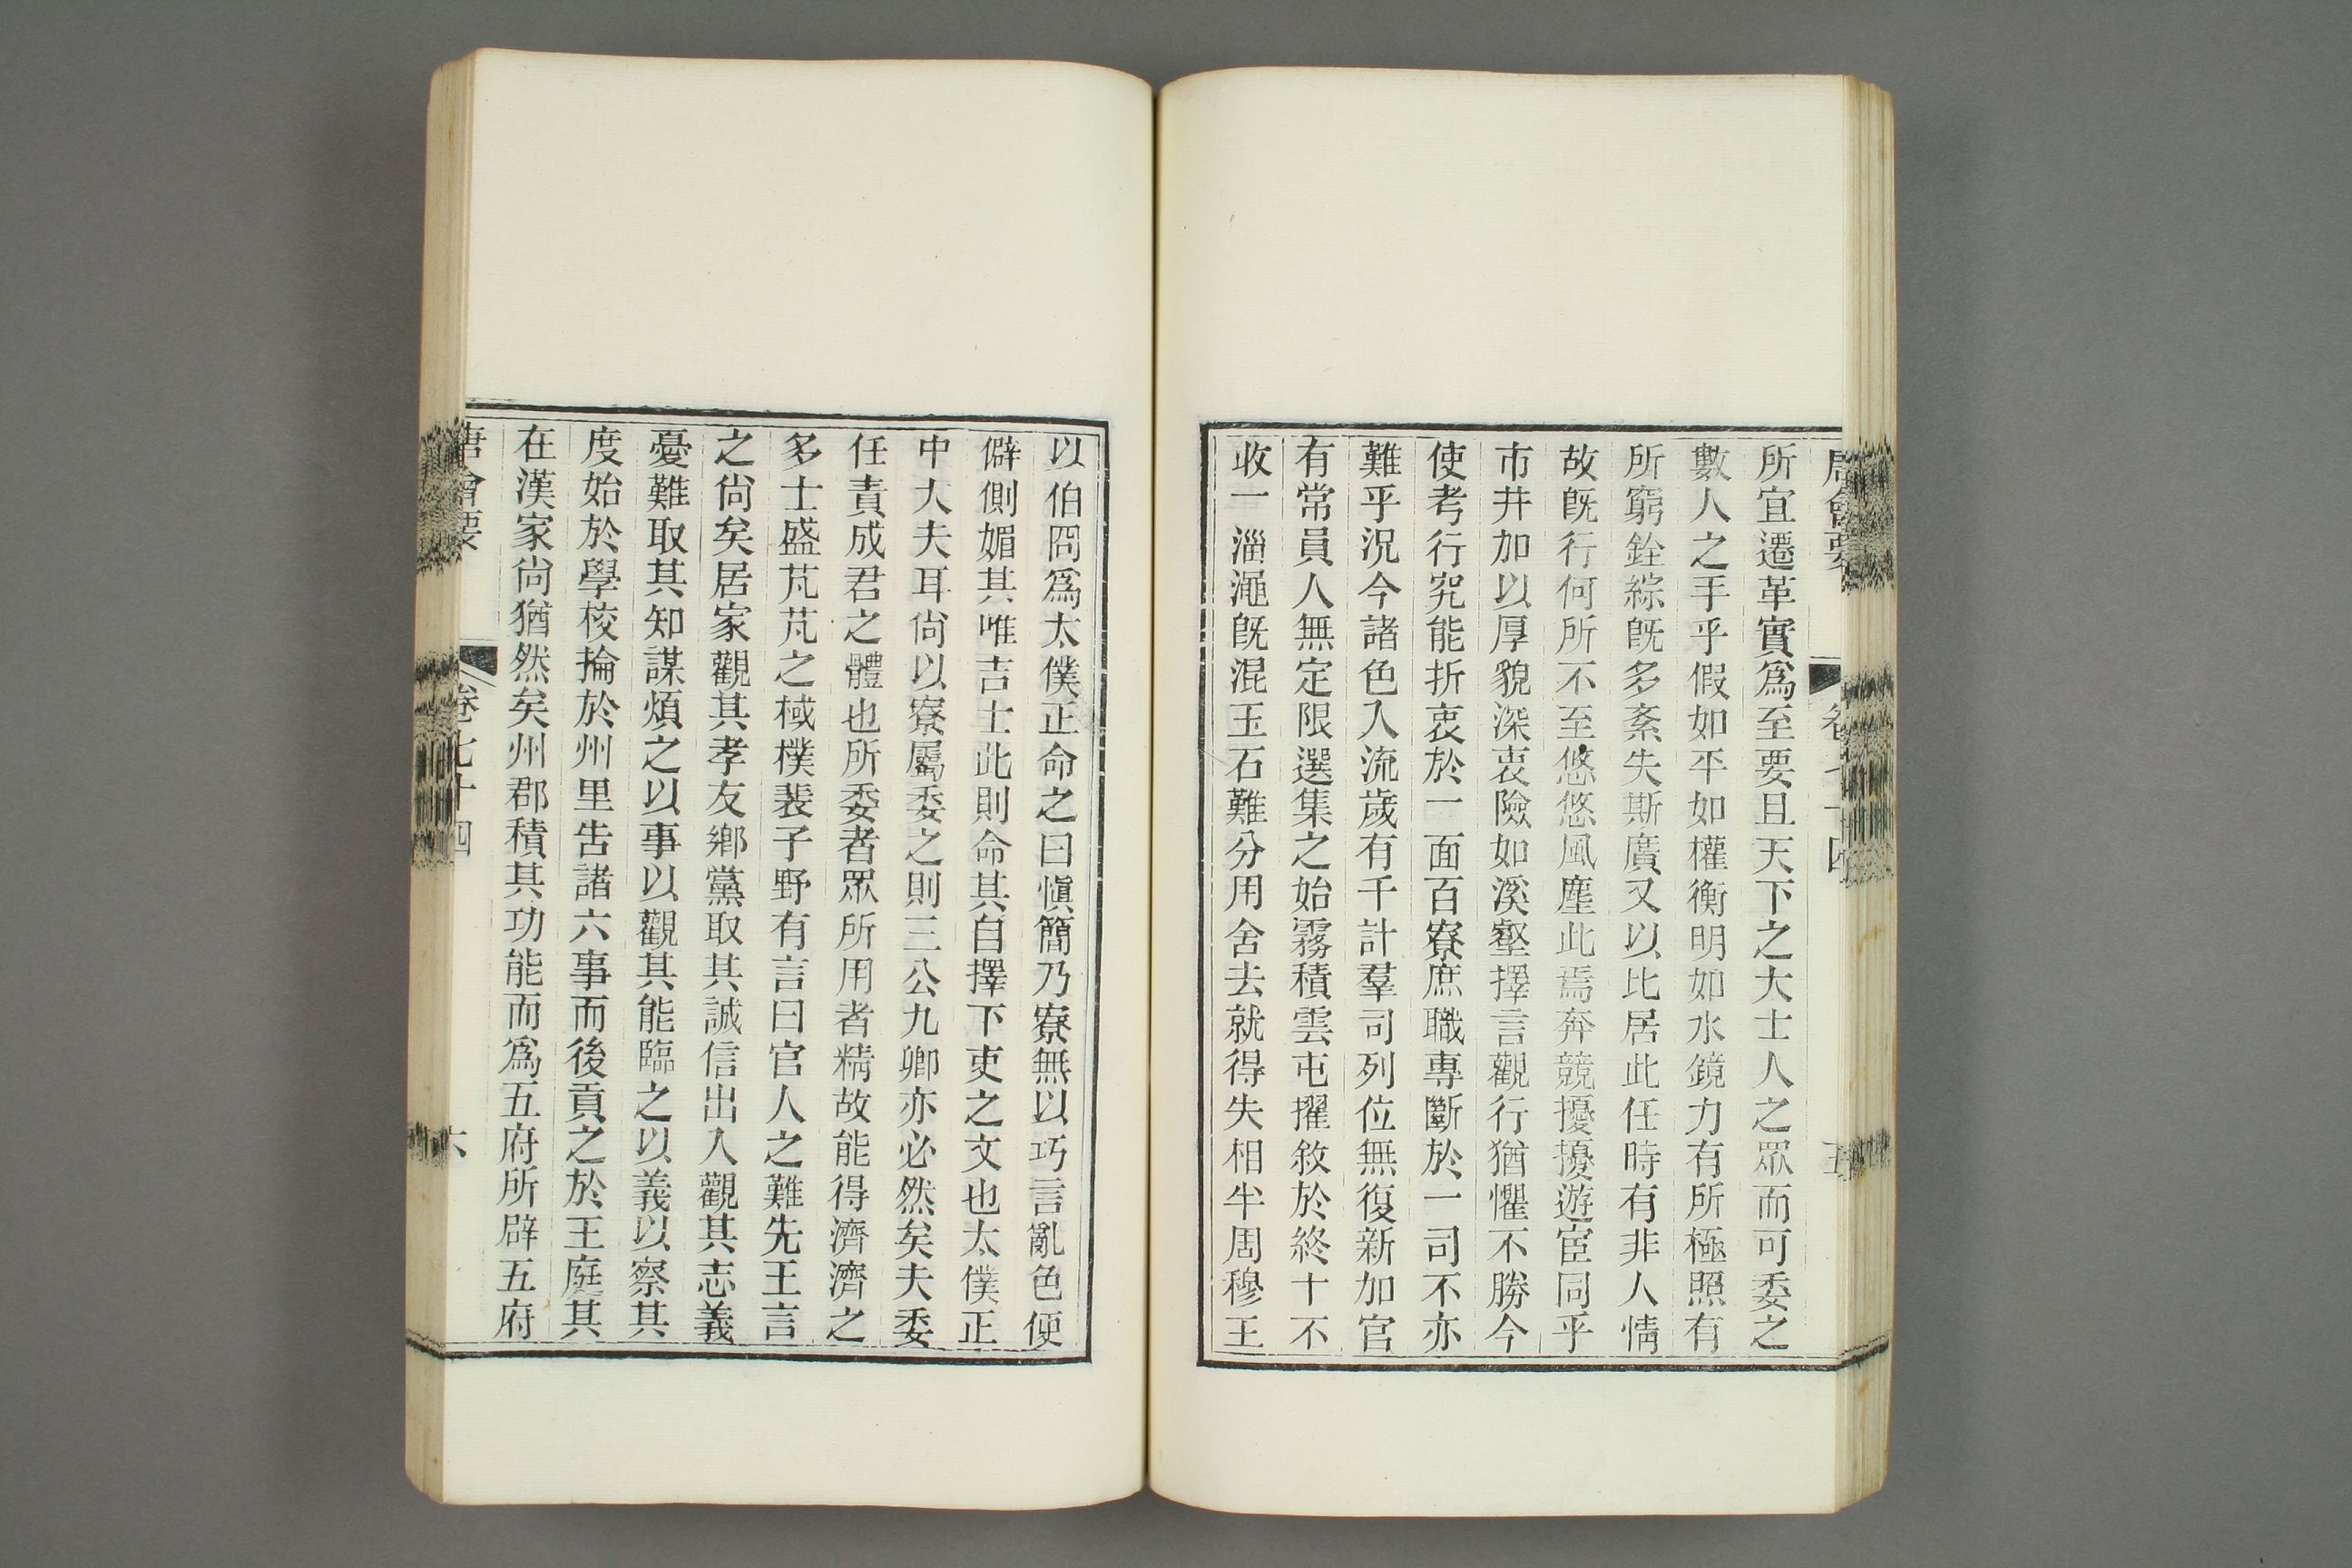 唐會要 卷七十四 五
所宜遷革實爲至要且天下之大士人之眾而可委之
數人之手乎假如平如權衡明如水鏡力有所極照有
所窮銓綜旣多紊失斯廣又以比居此任時有非人情
故旣行何所不至悠悠風塵此焉奔競擾擾遊宦同乎
市井加以厚貌深衷險如溪壑擇言觀行猶懼不勝今
使考行究能折衷於一面百寮庶職專斷於一司不亦
難乎況今諸色入流歲有千計羣司列位無復新加官
有常員人無定限選集之始霧積雲屯擢敘於終十不
收一淄澠旣混玉石難分用舍去就得失相半周穆王
以伯冏爲太僕正命之曰愼簡乃寮無以巧言亂色便
僻側媚其唯吉士此則命其自擇下吏之文也太僕正
中大夫耳尙以寮屬委之則三公九卿亦必然矣夫委
任責成君之體也所委者眾所用者精故能得濟濟之
多士盛芃芃之棫樸裴子野有言曰官人之難先王言
之尙矣居家觀其孝友鄉黨取其誠信出入觀其志義
憂難取其知謀煩之以事以觀其能臨之以義以察其
度始於學校掄於州里告諸六事而後貢之於王庭其
在漢家尙猶然矣州郡積其功能而爲五府所辟五府
唐會要 卷七十四 六